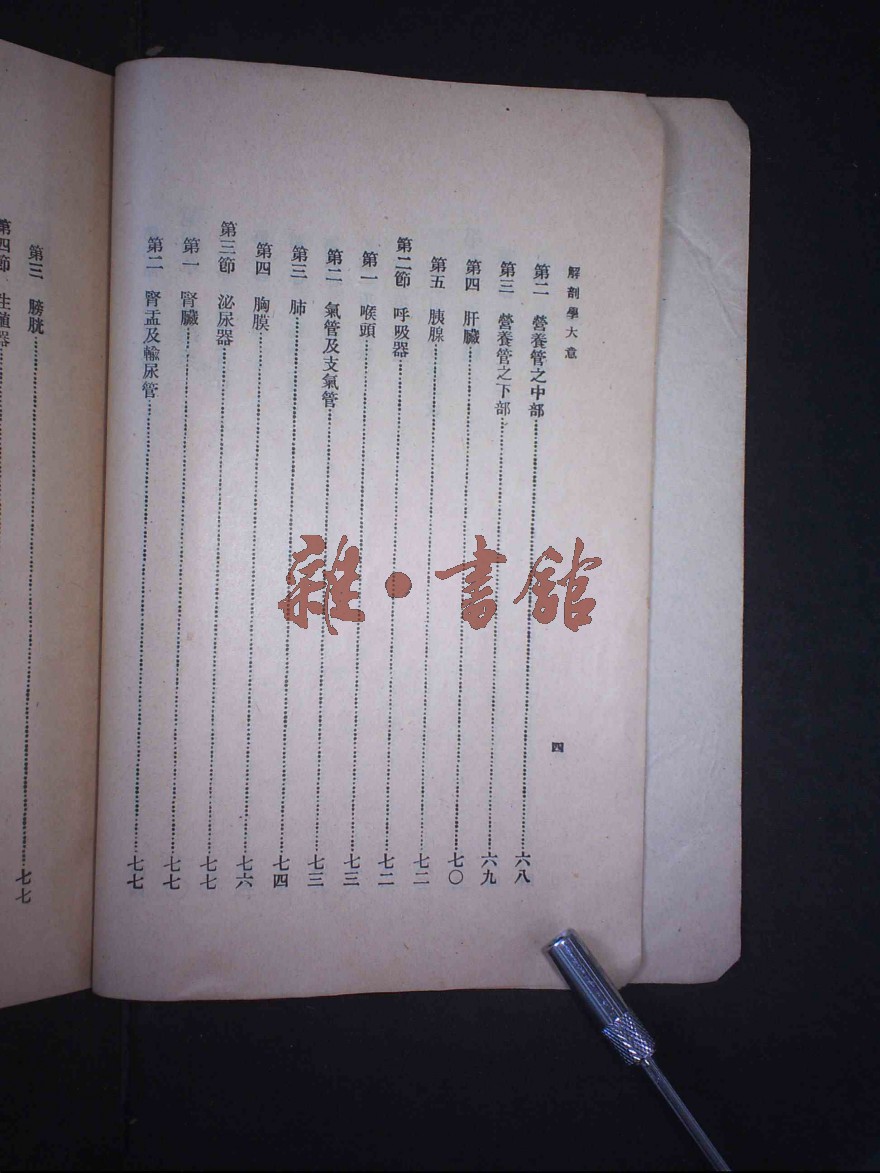 解剖學大意
四
第二 營養管之中部 六八
第三 營養管之下部 六九
第四 肝臟 七〇
第五 胰腺 七二
第二節 呼吸器 七二
第一 喉頭 七三
第二 氣管及支氣管 七三
第三 肺 七四
第四 胸膜 七六
第三節 泌尿器 七七
第一 腎臟 七七
第二 腎盂及輸尿管 七七
第三 膀胱 七七
第四節 生殖器
雜·書館